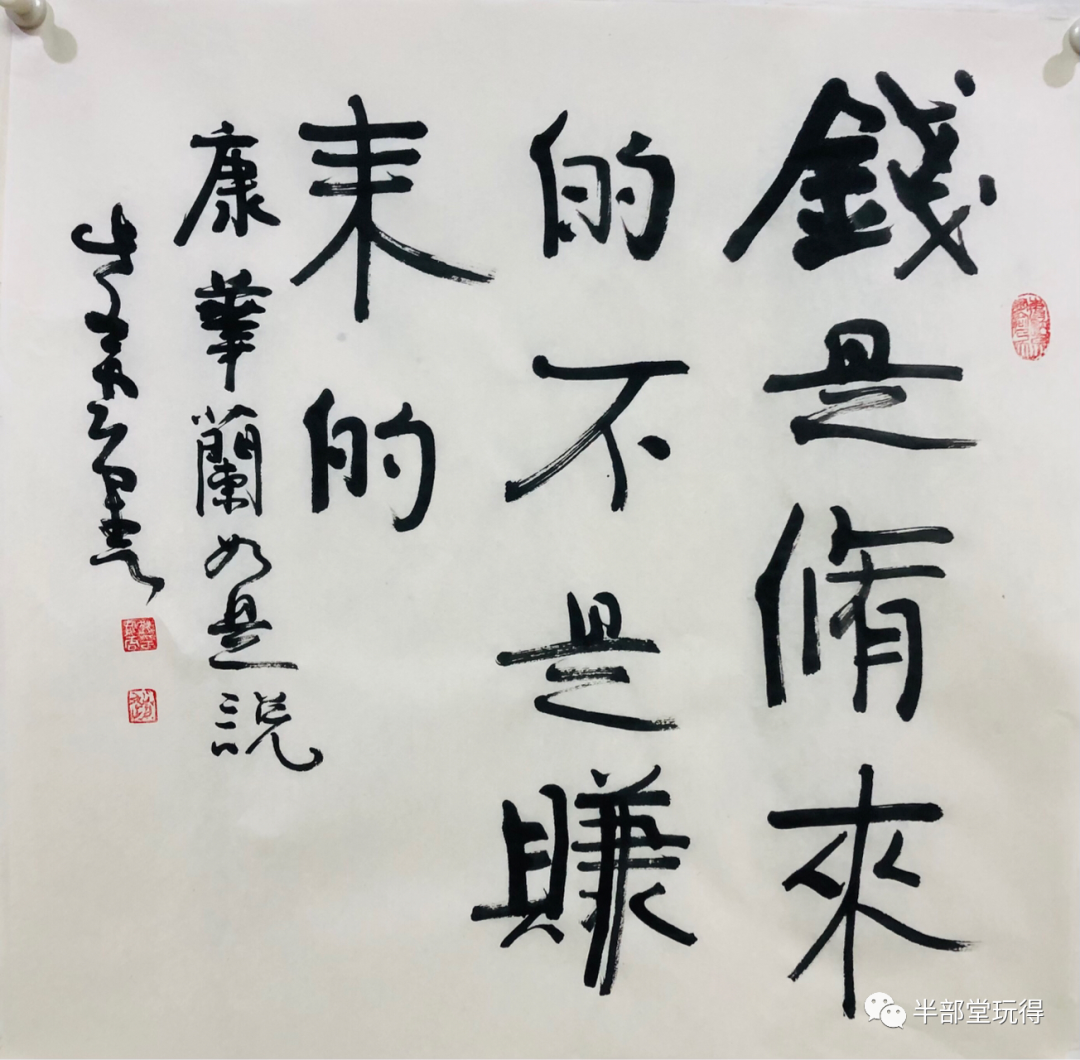 錢是脩來
的不是賺
来的
康華蘭如是說
半部堂玩得